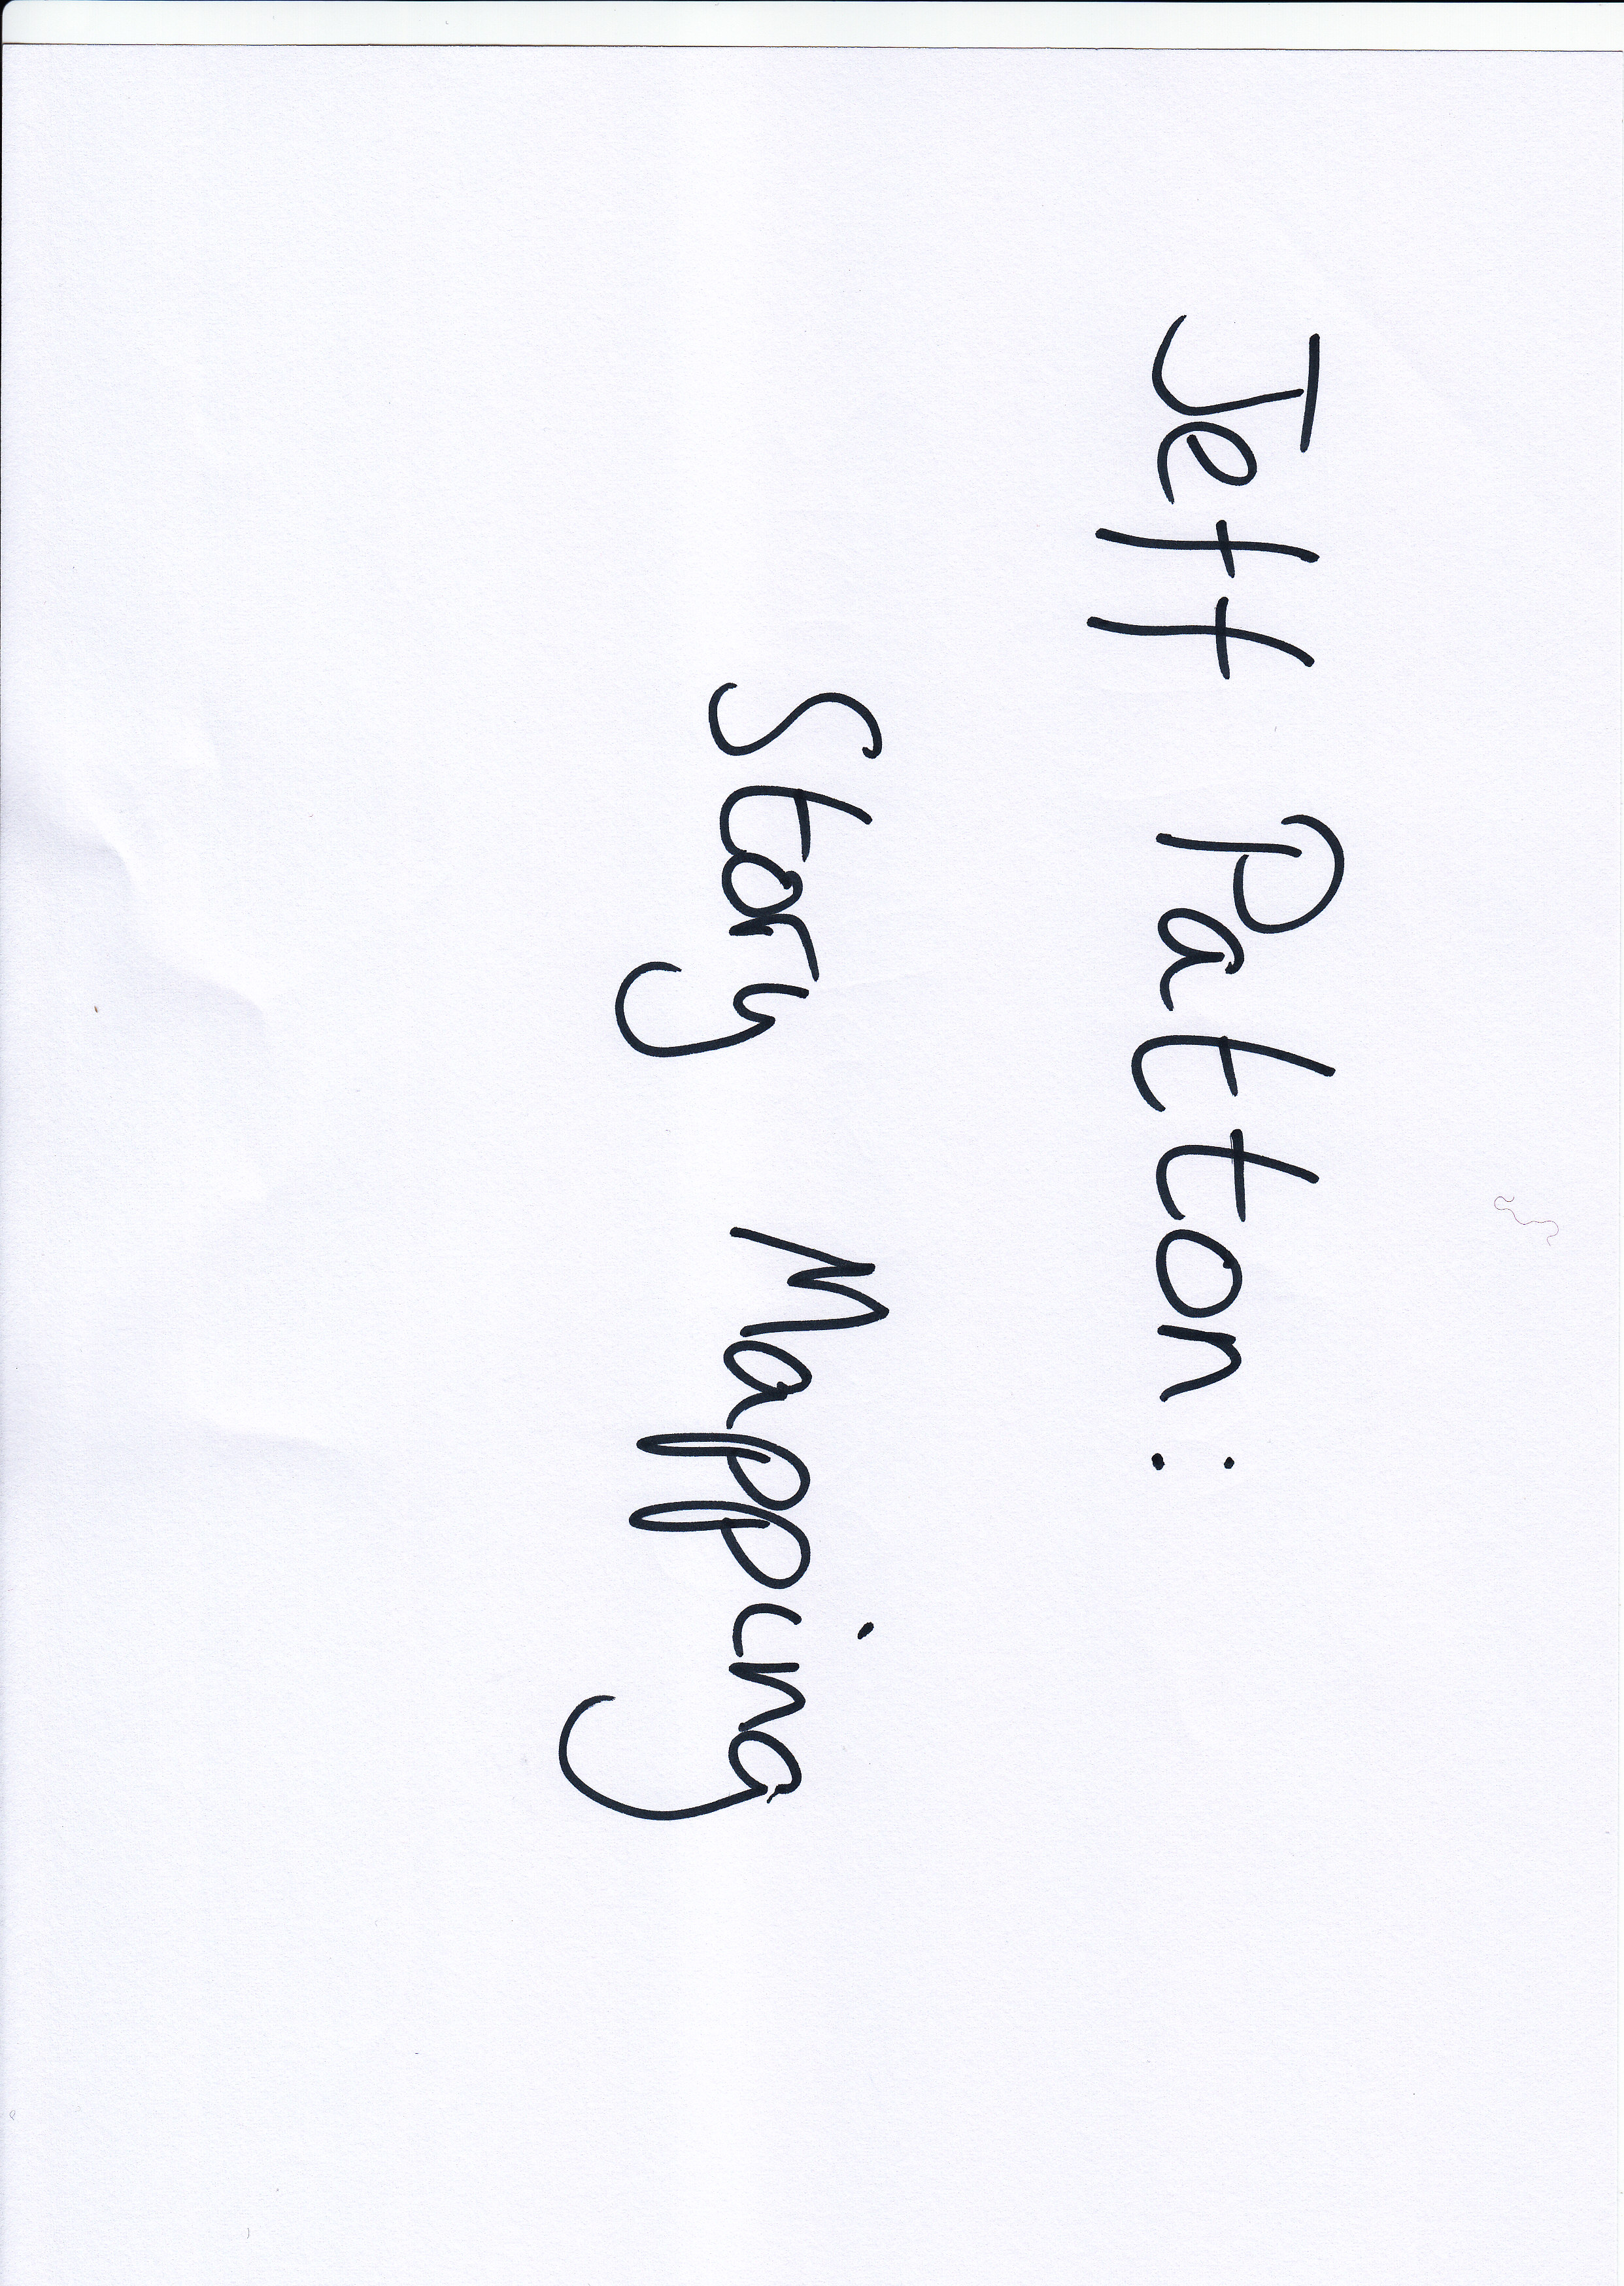 Jeff Patton:
Story Mapping